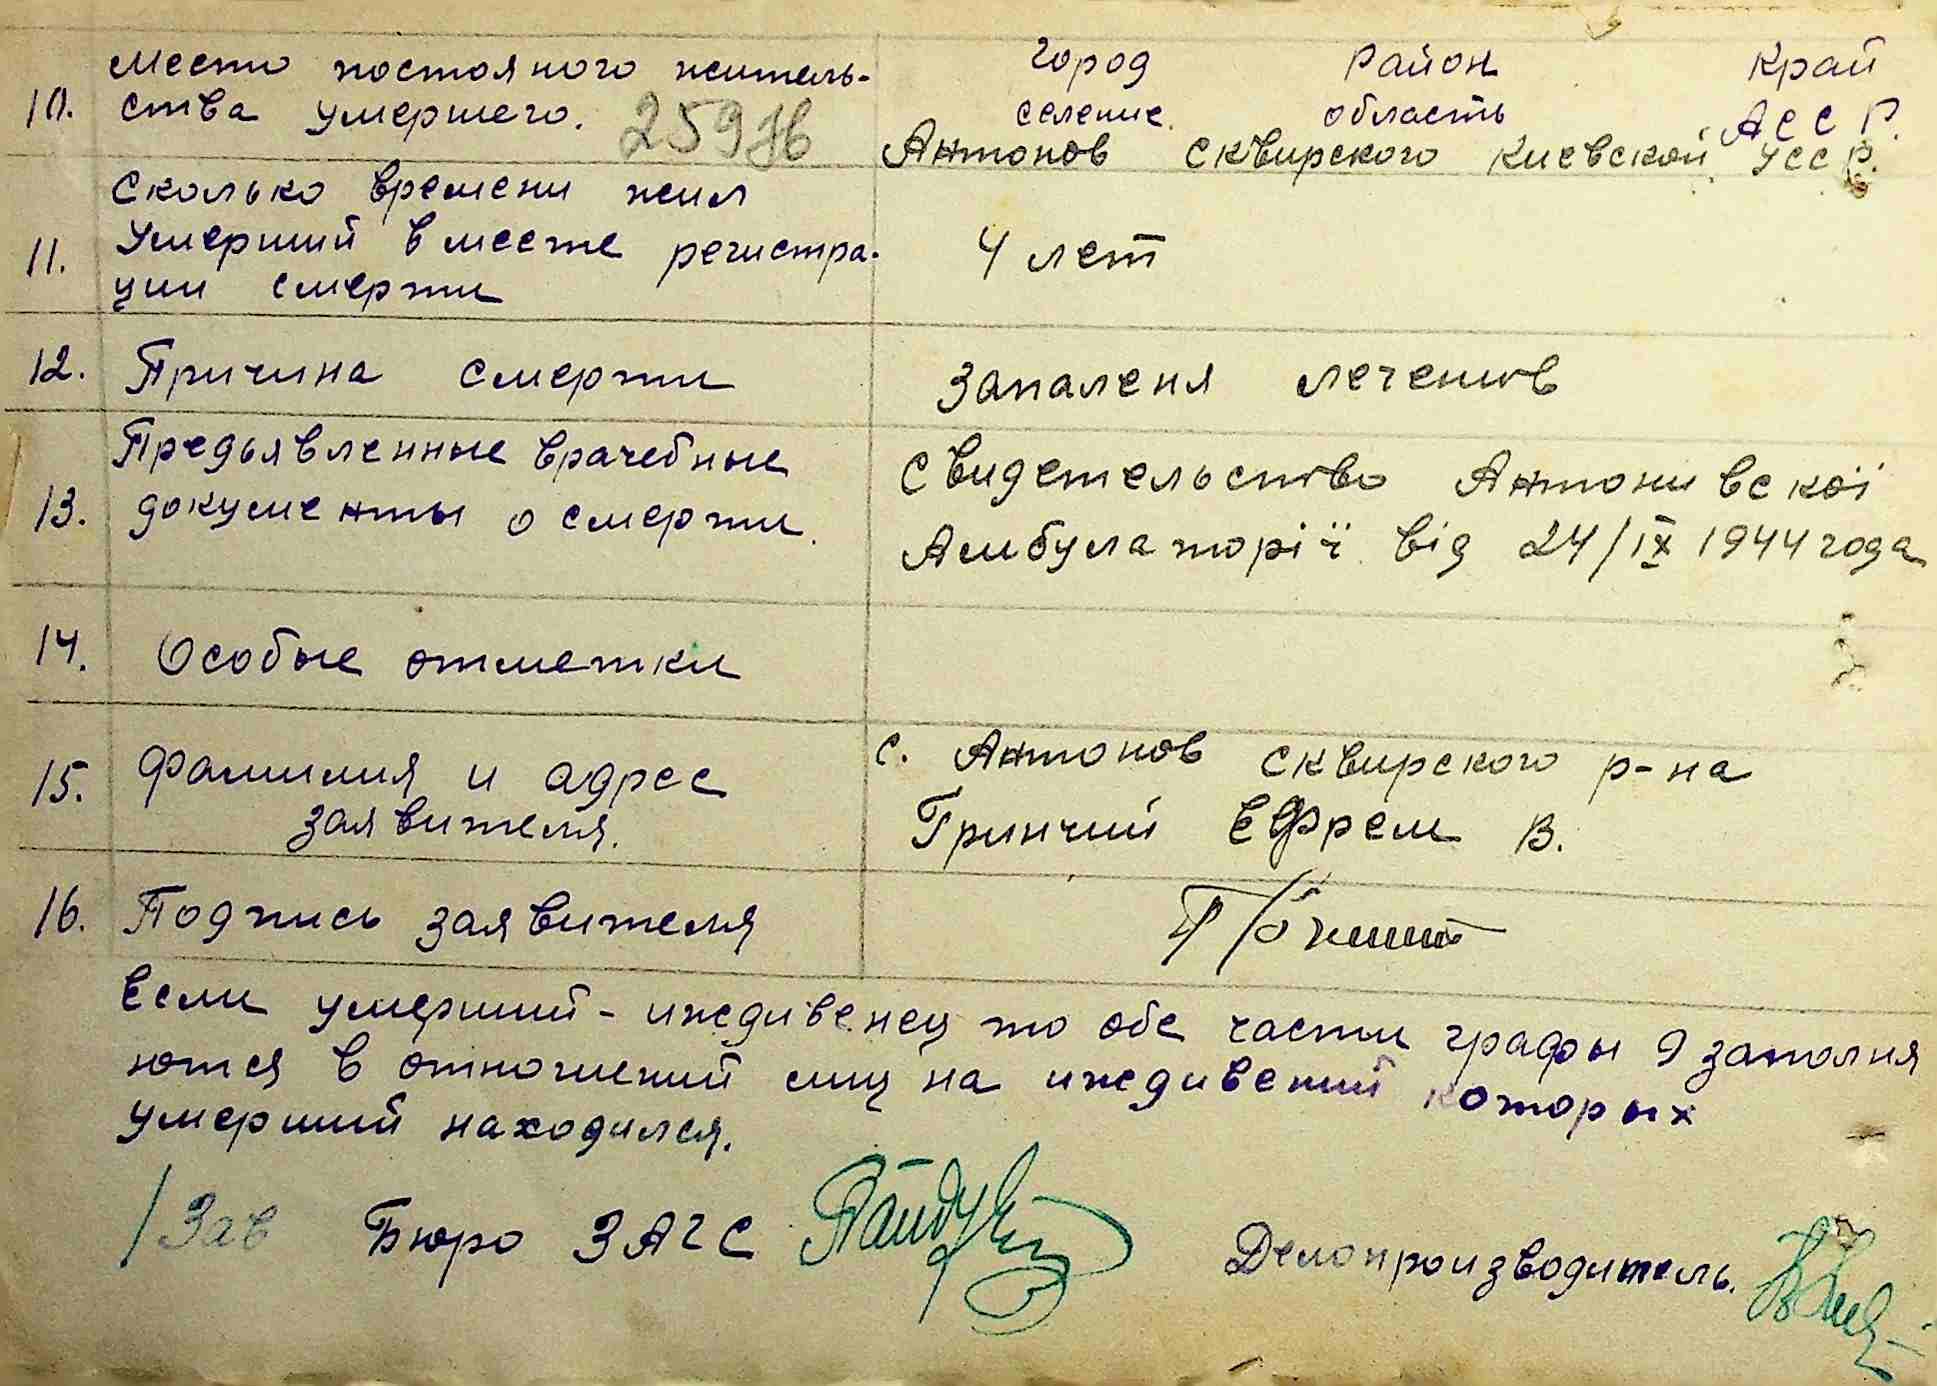 10. Место постояного житель-
ства умершего. 259
город район край
селение. область АССР.
Антонов Сквирского Киевской УССР.
11. Сколько времени жил
умерший в месте регистра-
ции смерти
4 лет
12. Причина смерти
Запаленя легенів
13. Предьявленные врачебные
документы о смерти.
Свидетельство Антонивскоі
Амбулаторії від 24/IX 1944 года
14. Особые отметки
15. Фамилия и адрес
заявителя.
с. Антонов Сквирского р-на
Гринчий Ефрем В.
16. Подпись заявителя
Если умерший - иждивенец то обе части графы 9 заполня
ются в отношений лиц на иждивений которых
умерший находился.
/Зав Бюро ЗАГС
Делопроизводитель.